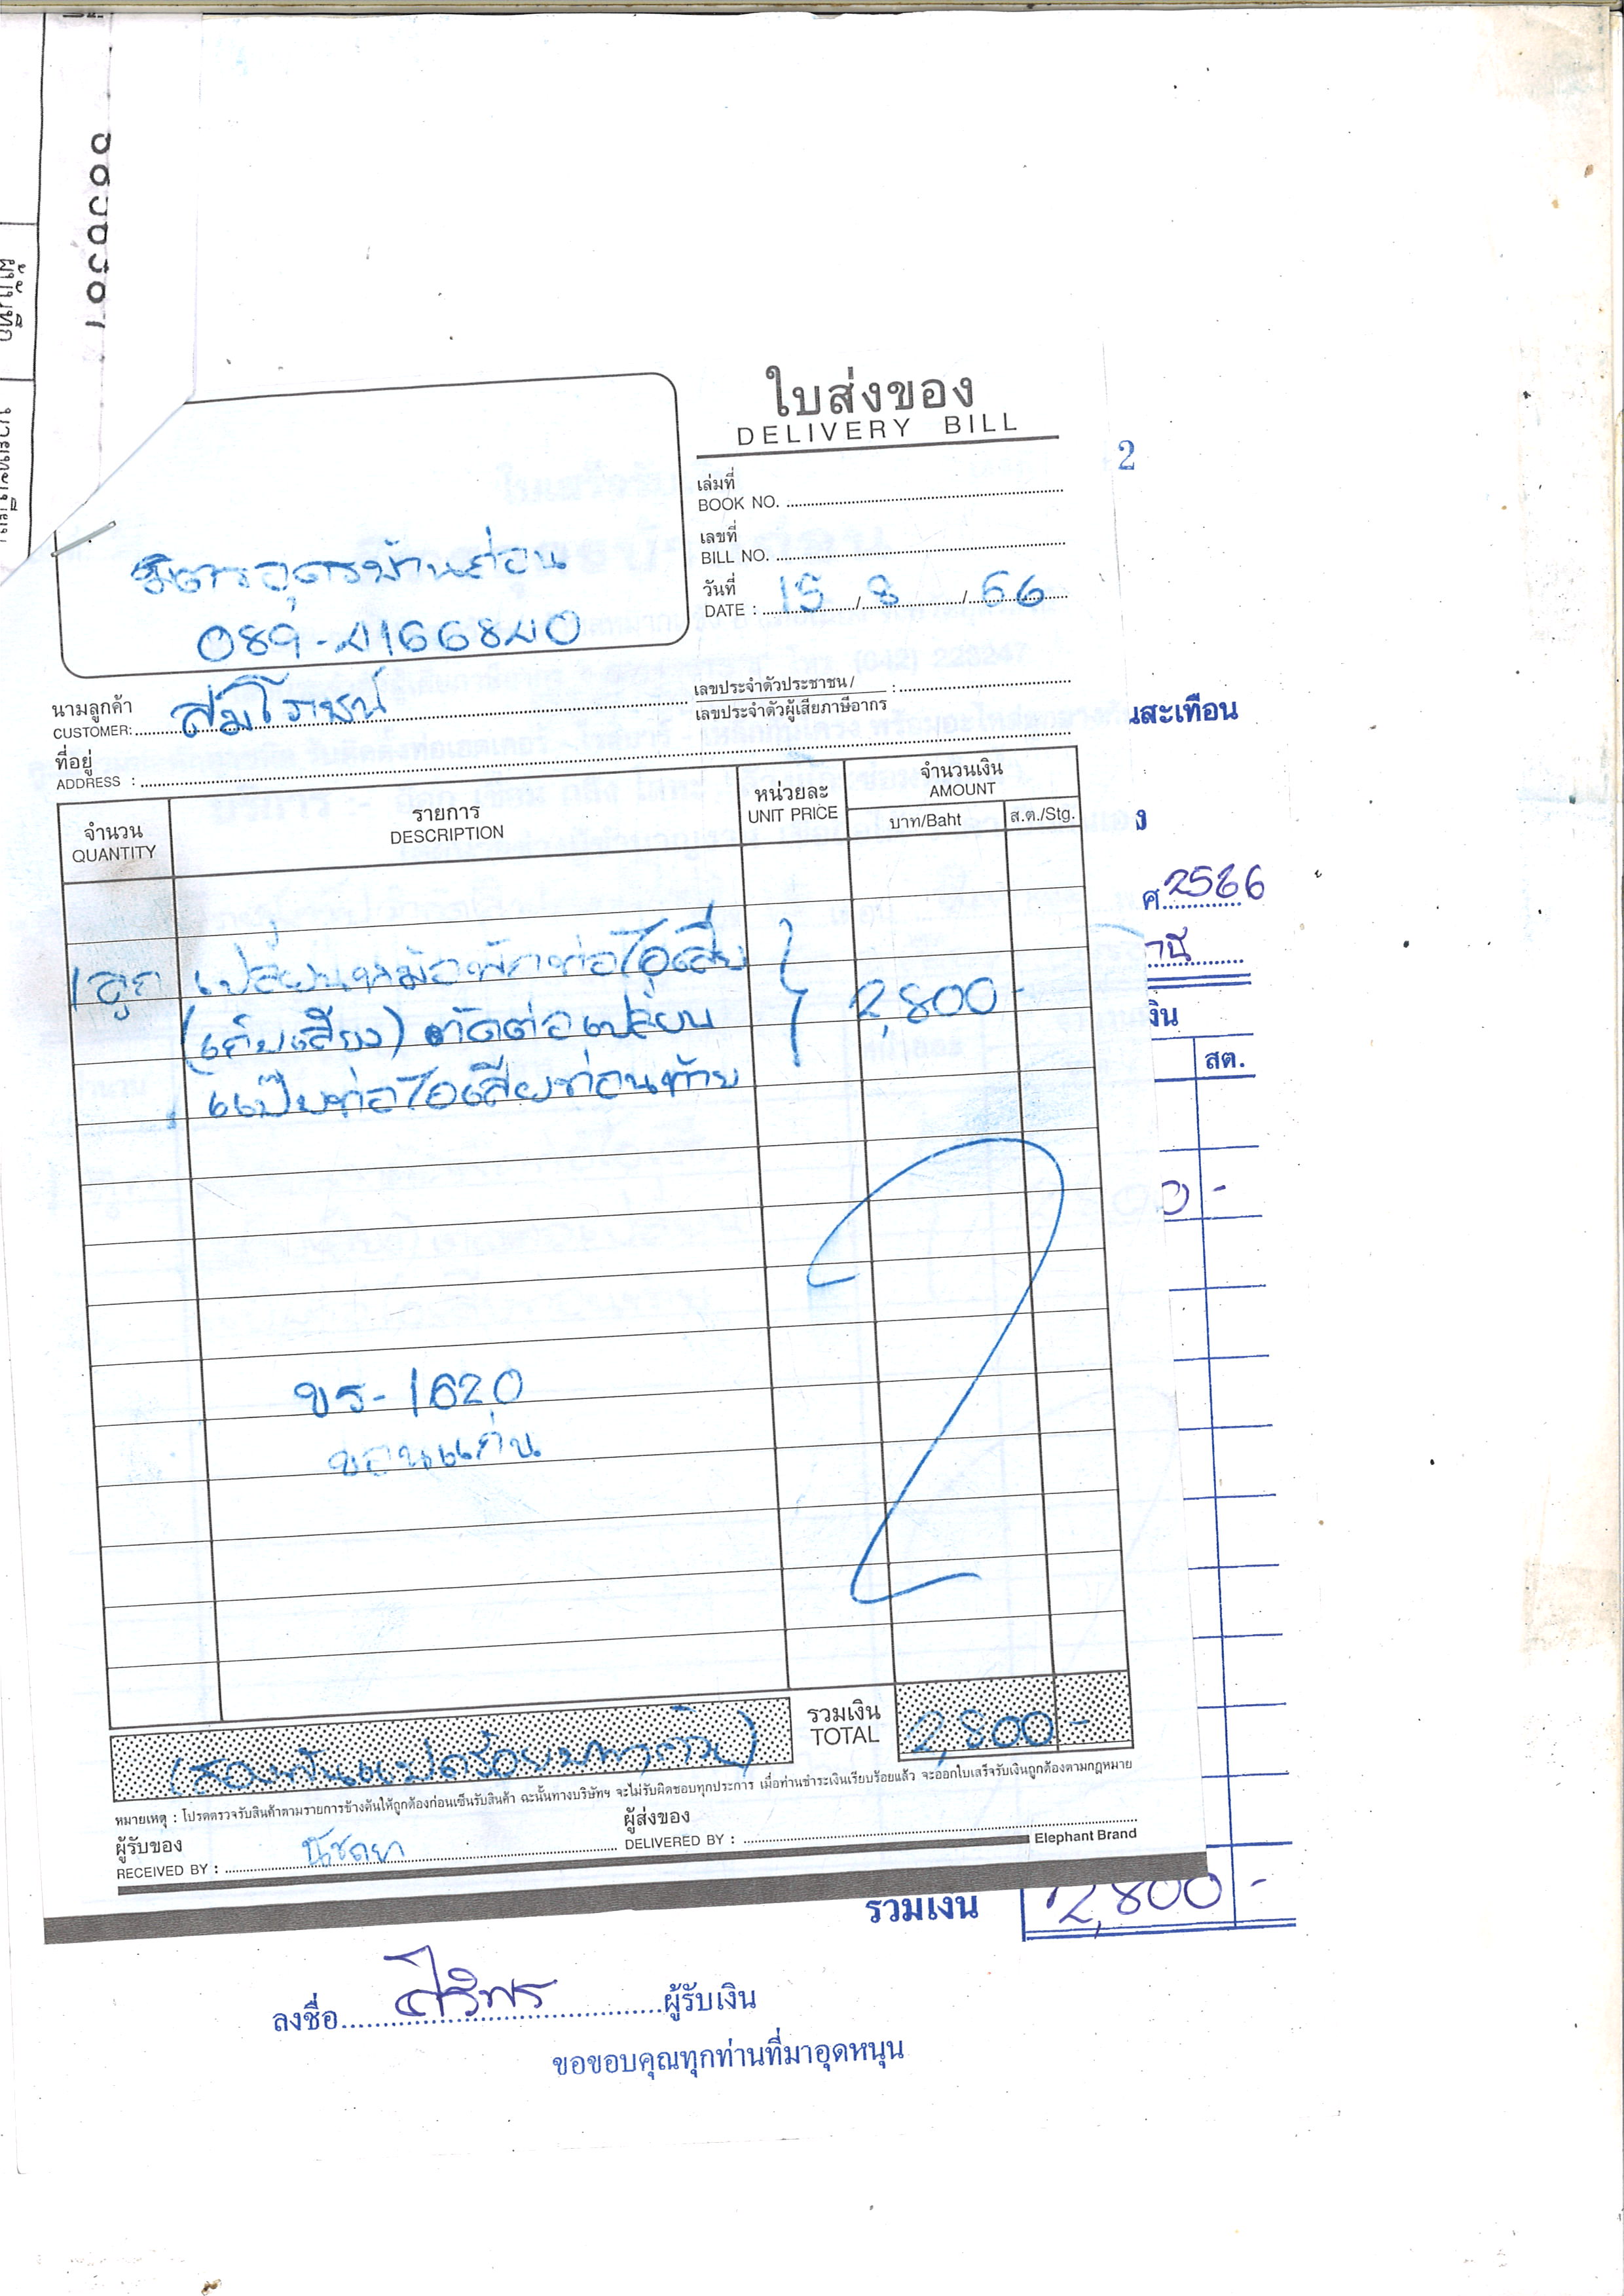 ใบส่งของ
DELIVERY BILL
2
เล่มที่
BOOK NO.
เลขที่
BILL NO.
วันที่
DATE : 15 / 8 / 66
มิตรอุดรบ้านถ่อน
089-4166840
นามลูกค้า
CUSTOMER: สมโรชน์
เลขประจำตัวประชาชน /
เลขประจำตัวผู้เสียภาษีอากร :
ที่อยู่
ADDRESS :
นสะเทือน
จำนวน
QUANTITY
รายการ
DESCRIPTION
หน่วยละ
UNIT PRICE
จำนวนเงิน
AMOUNT
บาท/Baht
ส.ต./Stg.
ง
ศ. 2566
านี
งิน
สต.
1 ลูก เปลี่ยนหม้อพักท่อไอเสีย
(เก็บเสียง) ตัดต่อเปลี่ยน 2,800 -
แป๊บท่อไอเสียท่อนท้าย
0 -
ขร-1620
ขอนแก่น
(สองพันแปดร้อยบาทถ้วน)
รวมเงิน
TOTAL
2,800 -
หมายเหตุ : โปรดตรวจรับสินค้าตามรายการข้างต้นให้ถูกต้องก่อนเซ็นรับสินค้า ฉะนั้นทางบริษัทฯ จะไม่รับผิดชอบทุกประการ เมื่อท่านชำระเงินเรียบร้อยแล้ว จะออกใบเสร็จรับเงินถูกต้องตามกฎหมาย
ผู้รับของ
RECEIVED BY : นัชยา
ผู้ส่งของ
DELIVERED BY :
Elephant Brand
รวมเงิน 2,800 -
ลงชื่อ ศิริพร ผู้รับเงิน
ขอขอบคุณทุกท่านที่มาอุดหนุน